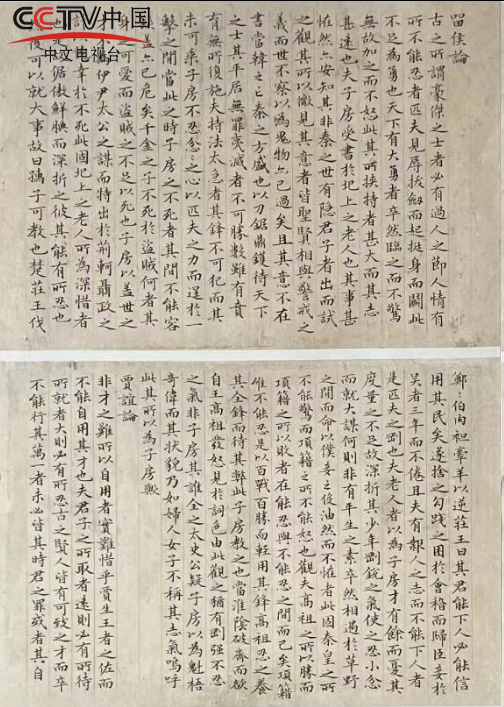 CCTV中国
中文电视台
留侯論
古之所謂豪傑之士者必有過人之節人情有
所不能忍者匹夫見辱拔劍而起挺身而鬭此
不足為勇也天下有大勇者卒然臨之而不驚
無故加之而不怒此其所挾持者甚大而其志
甚遠也夫子房受書於圯上之老人也其事甚
怪然亦安知其非秦之世有隱君子者出而試
之觀其所以微見其意者皆聖賢相與警戒之
義而世不察以為鬼物亦已過矣且其意不在
書當韓之亡秦之方盛也以刀鋸鼎鑊待天下
之士其平居無罪夷滅者不可勝數雖有賁
育無所復施夫持法太急者其鋒不可犯而其
未可乘子房不忍忿忿之心以匹夫之力而逞於一
擊之間當此之時子房之不死者其間不能容
蓋亦已危矣千金之子不死於盜賊何者其
身之可愛而盜賊之不足以死也子房以蓋世之
不為伊尹太公之謀而特出於荊軻聶政之
計以僥倖於不死此固圯上之老人所為深惜者
也是故倨傲鮮腆而深折之彼其能有所忍也
然後可以就大事故曰孺子可教也楚莊王伐
鄭〻伯肉袒牽羊以逆莊王曰其君能下人必能信
用其民矣遂捨之勾踐之困於會稽而歸臣妾於
吳者三年而不倦且夫有報人之志而不能下人者
是匹夫之剛也夫老人者以為子房才有餘而憂其
度量之不足故深折其少年剛銳之氣使之忍小忿
而就大謀何則非有平生之素卒然相遇於草野
之間而命以僕妾之役油然而不怪者此固秦皇之所
不能驚而項籍之所不能怒也觀夫高祖之所以勝而
項籍之所以敗者在能忍與不能忍之間而已矣項籍
唯不能忍是以百戰百勝而輕用其鋒高祖忍之養
其全鋒而待其弊此子房教之也當淮陰破齊而欲
自王高祖發怒見於詞色由此觀之猶有剛强不忍
之氣非子房其誰全之太史公疑子房以為魁梧
奇偉而其狀貌乃如婦人女子不稱其志氣嗚呼
此其所以為子房歟
賈誼論
非才之難所以自用者實難惜乎賈生王者之佐而
不能自用其才也夫君子之所取者遠則必有所待
所就者大則必有所忍古之賢人皆有可致之才而卒
不能行其萬一者未必皆其時君之罪或者其自